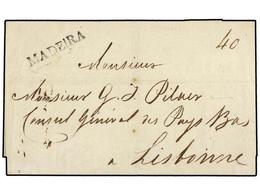 MADEIRA
40
Monsieur
Monsieur G. J.
Consul Général des Pays Bas
a Lisbonne